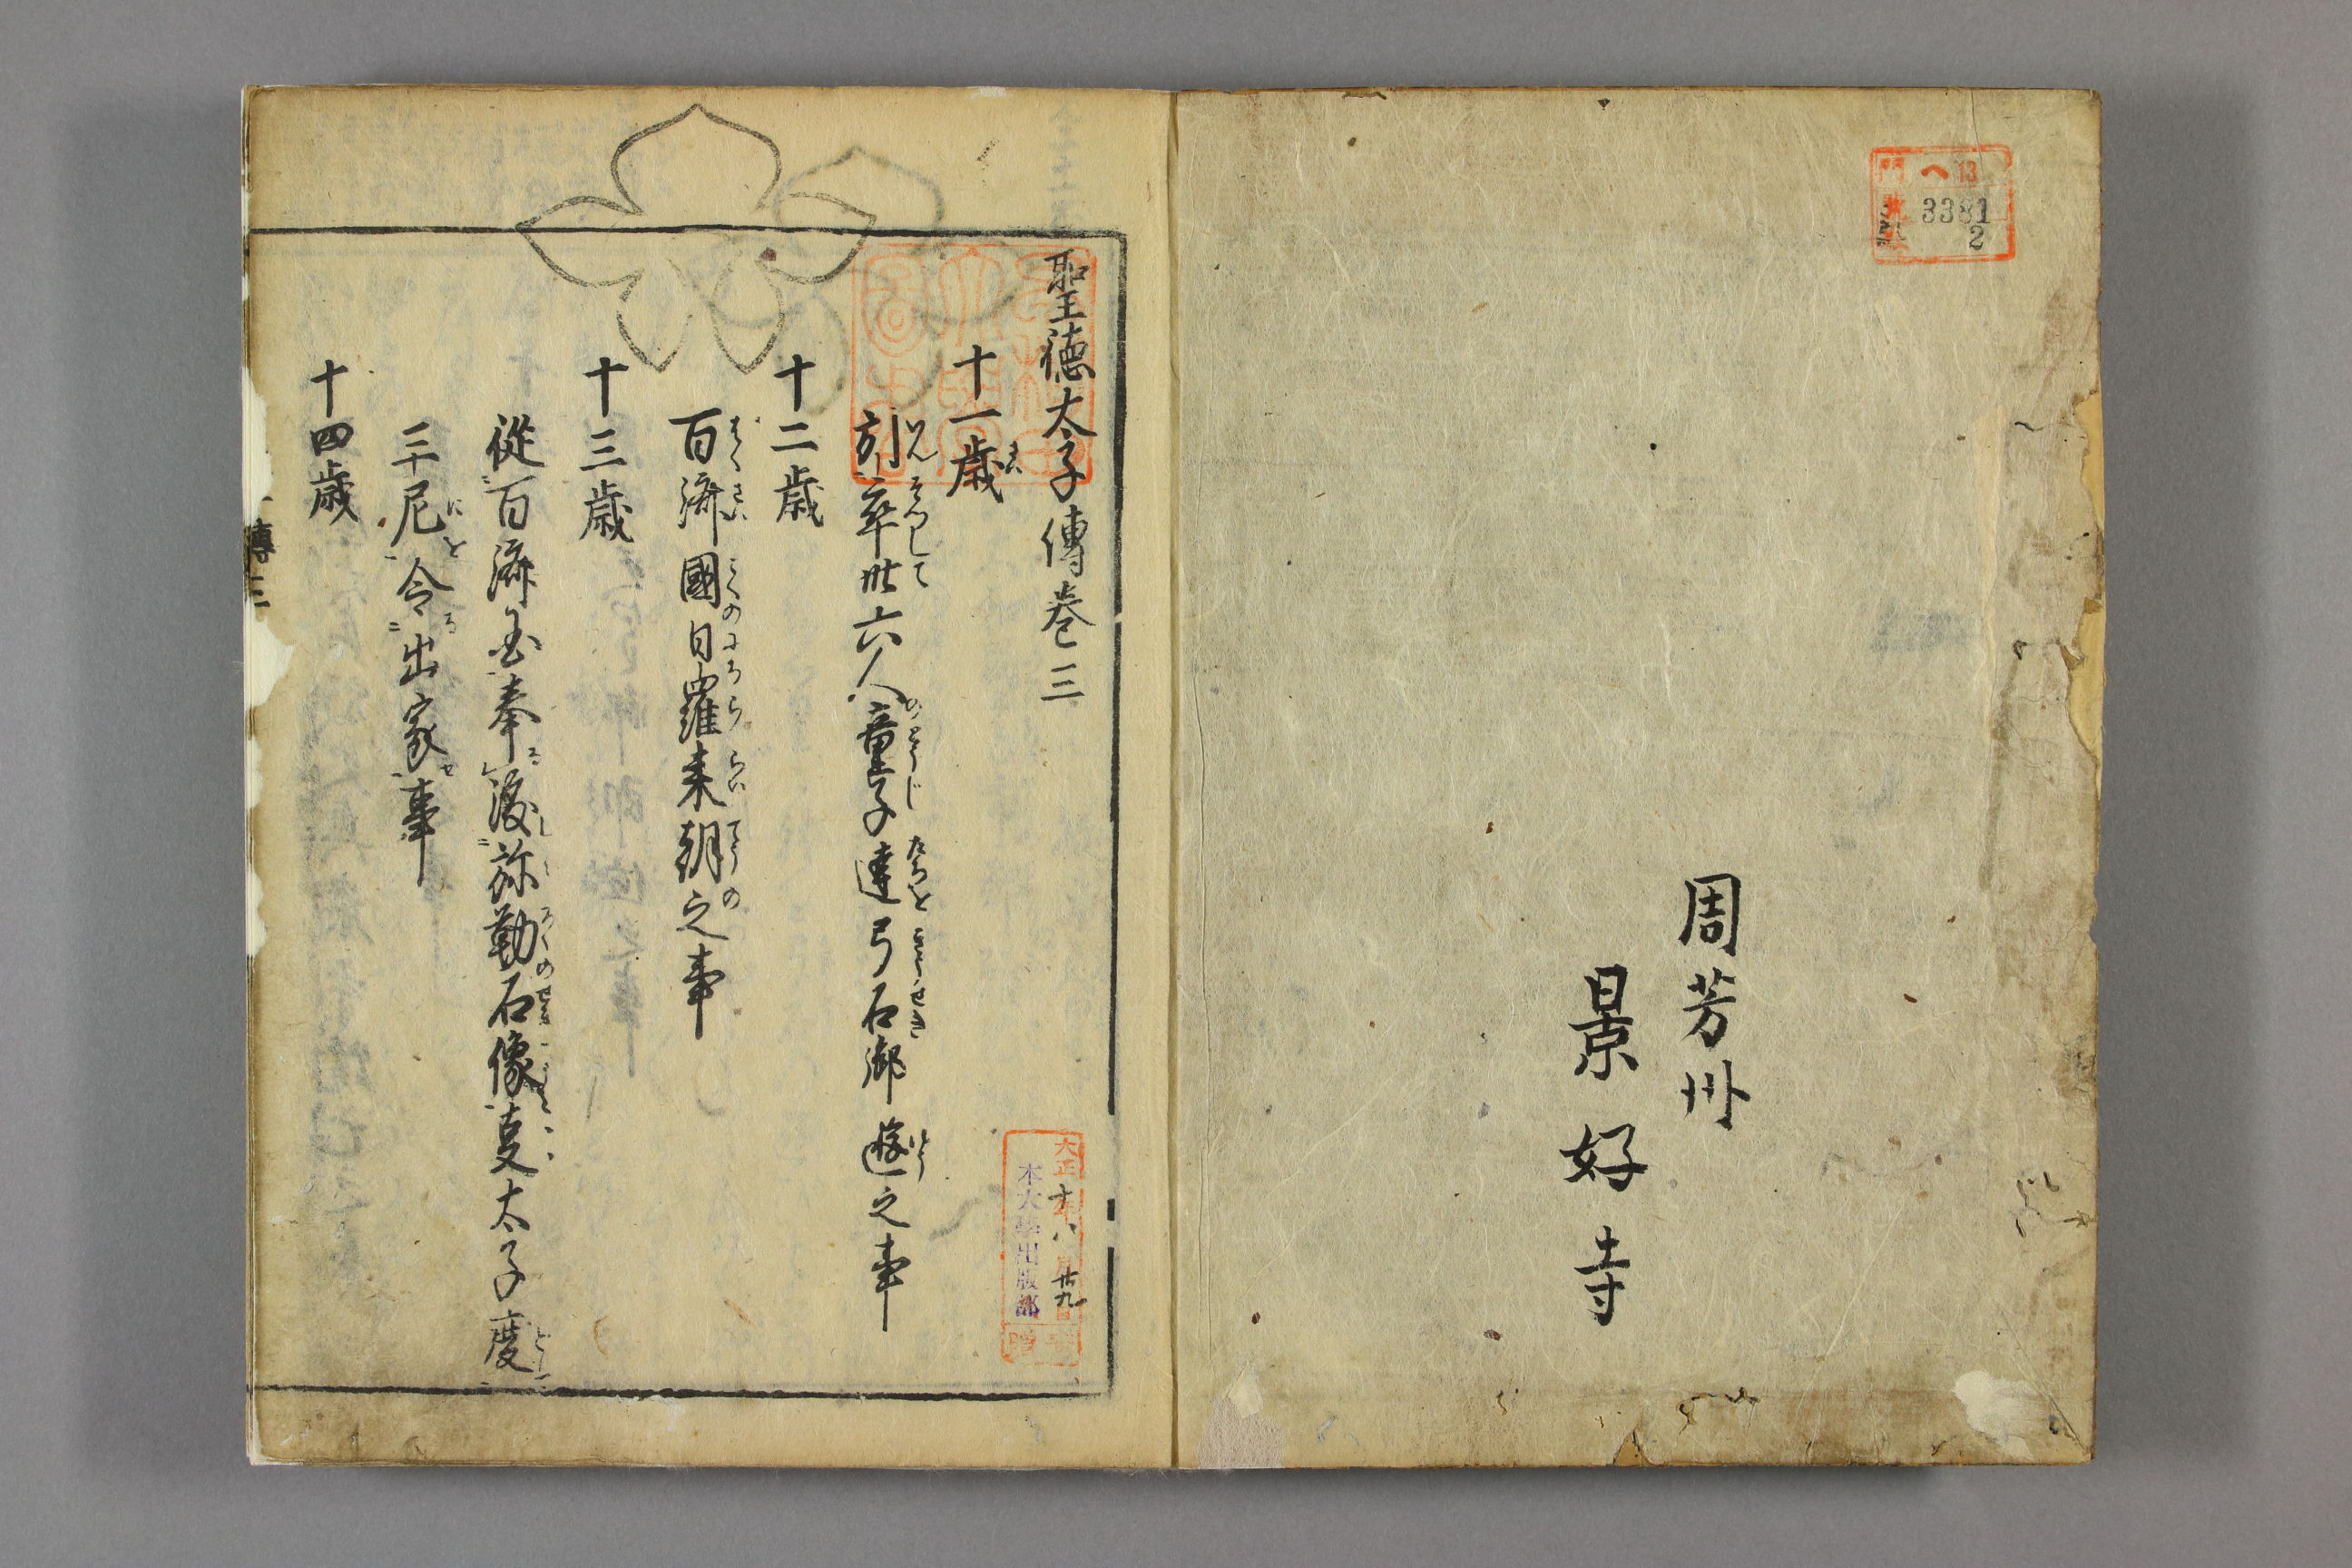 門 へ13
號 3381
2
周芳州
景好寺
聖徳太子傳巻三
十一歳
引率卅六人童子達弓石御遊之事
十二歳
百濟國日羅来朝之事
十三歳
従百濟国奉渡弥勒石像事太子度
三尼令出家事
十四歳
傳三
大正十年八月廿九日
本大學出版部